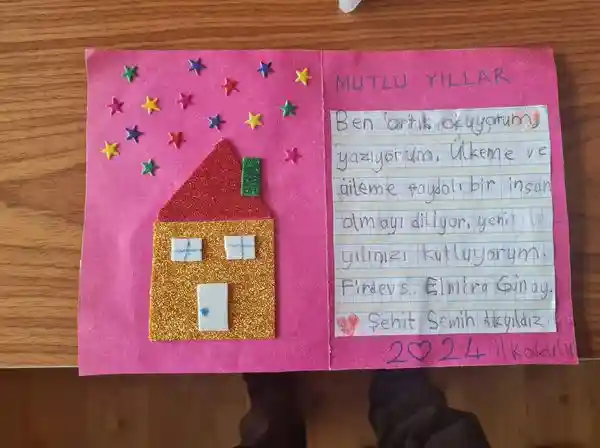 MUTLU YILLAR
Ben artık okuyorum,
yazıyorum. Ülkeme ve
aileme faydalı bir insan
olmayı diliyor, yeni
yılınızı kutluyorum.
Firdevs Elmira Günay.
Şehit Semih Akyıldız
2024 ilkokulu